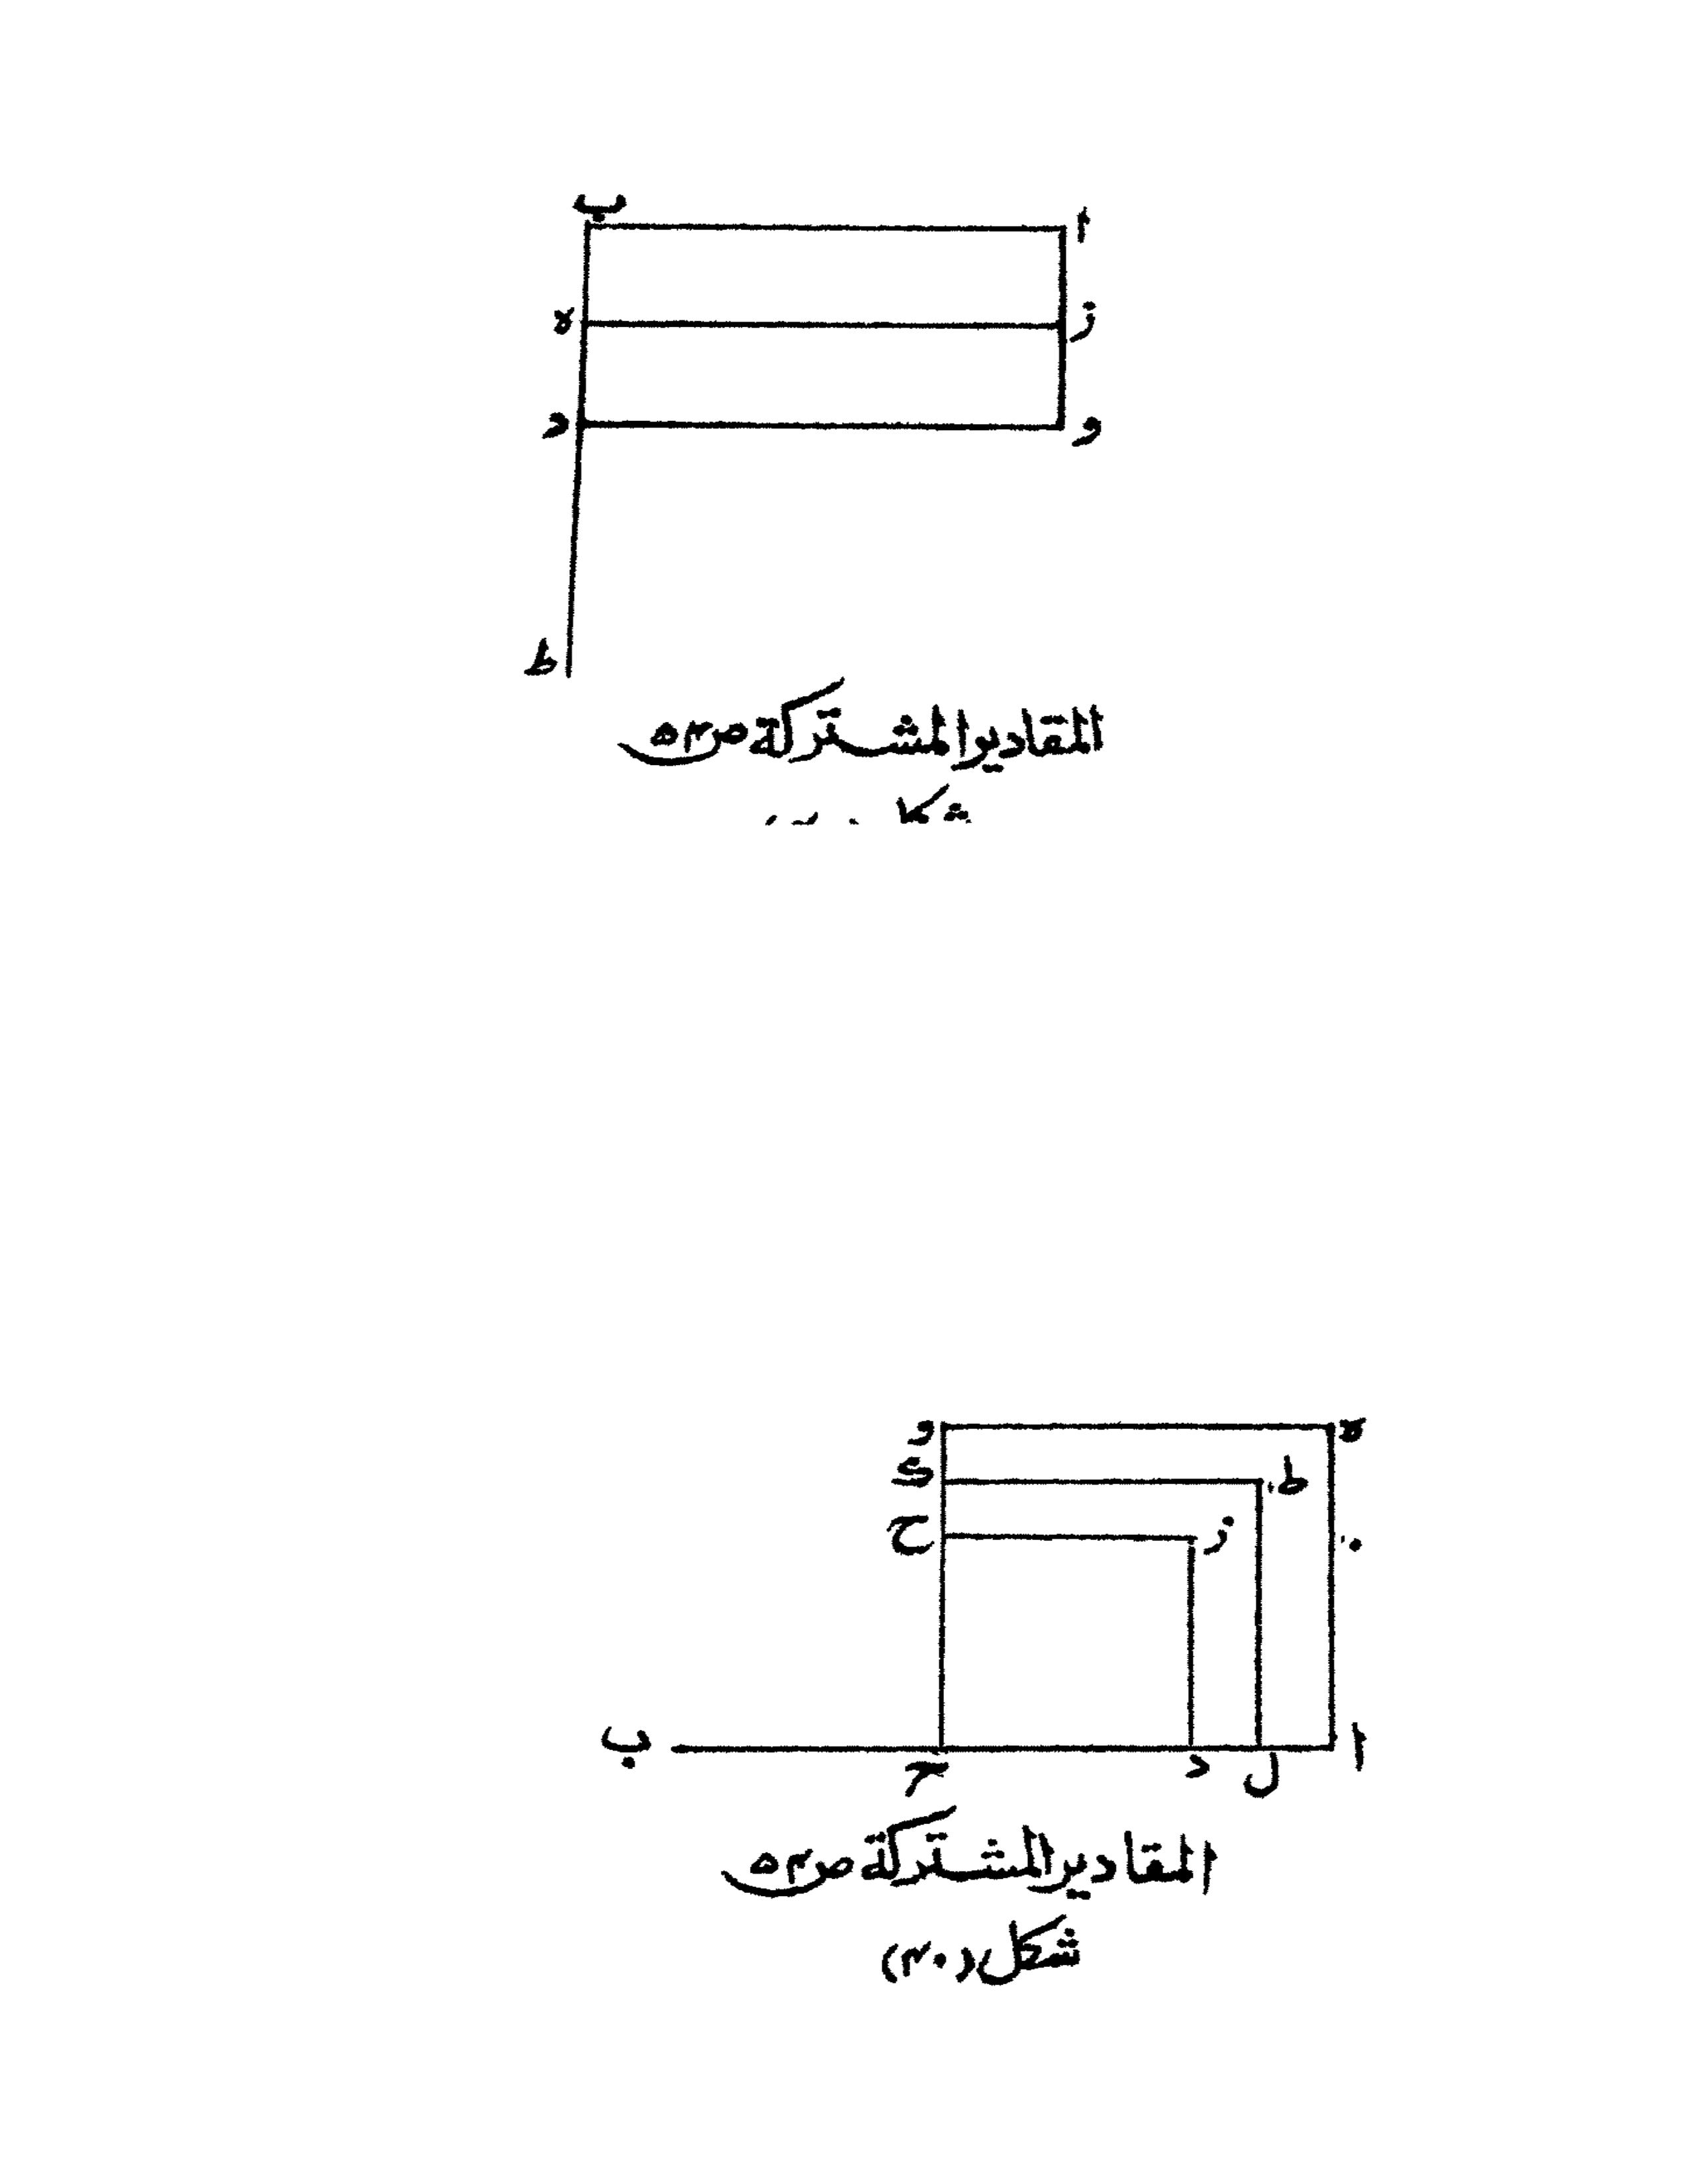 ب ا
ه ز
د و
ط
المقادير المشتركة ص ٥٣
شكل
و ه
ى ط
ح ز
ب ح د ل ا
المقادير المشتركة ص ٥٣
شكل (٣٠)